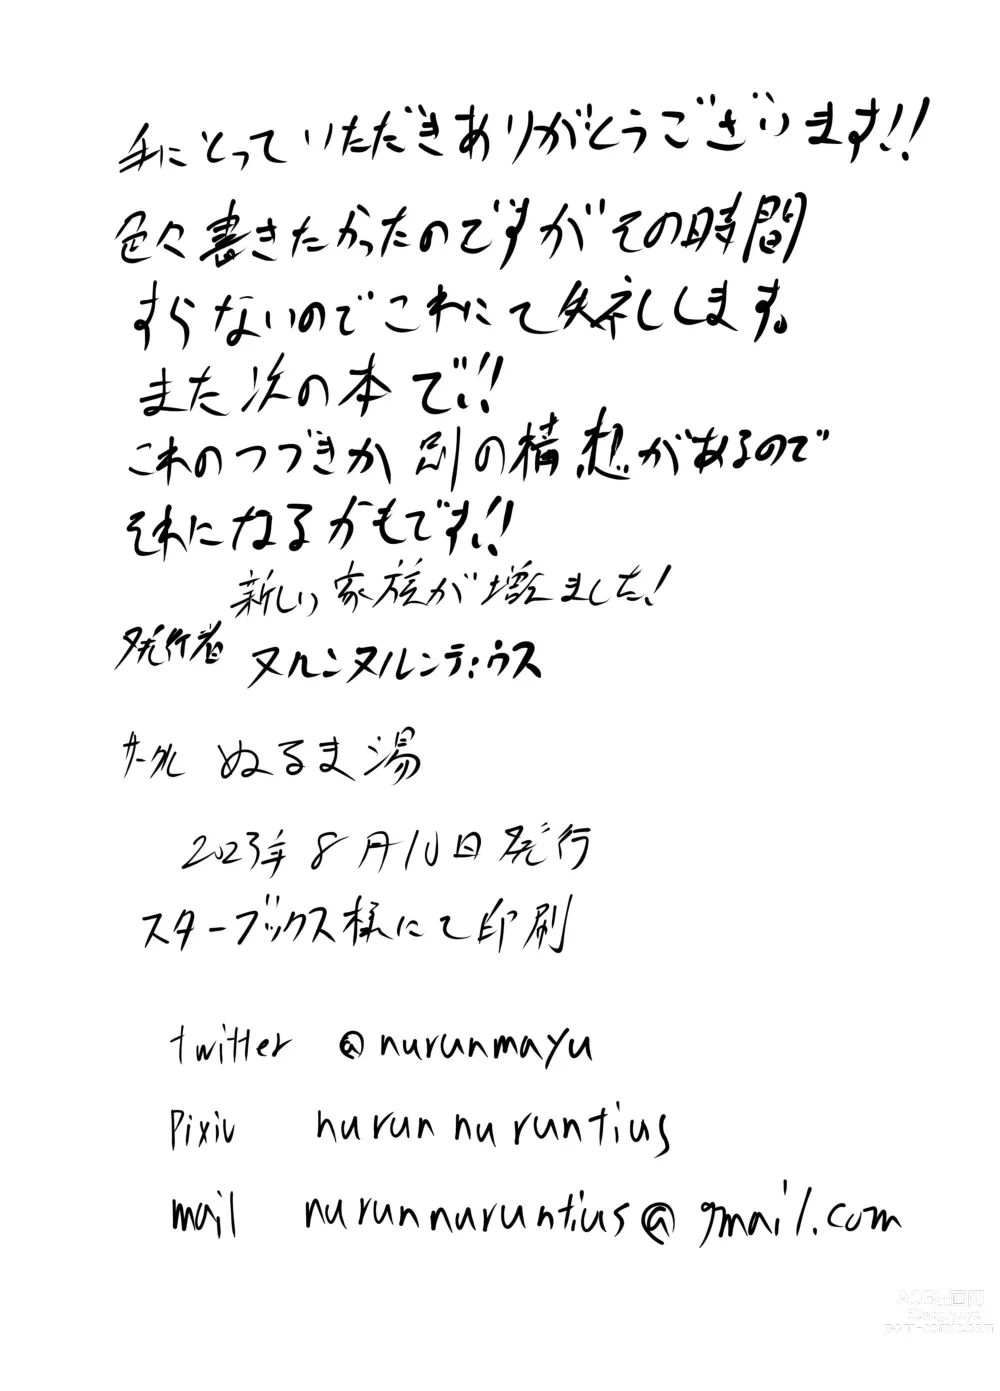 手にとっていただきありがとうございます!!
色々書きたかったのですがその時間
すらないのでこれにて失礼します。
また次の本で!!
これのつづきか別の構想があるので
それになるかもです!!
新しい家族が増えました!
発行者 ヌルンヌルンティウス
サークル ぬるま湯
2023年8月10日発行
スターブックス様にて印刷
twitter @nurunmayu
Pixiv nurunnuruntius
mail nurunnuruntius@gmail.com